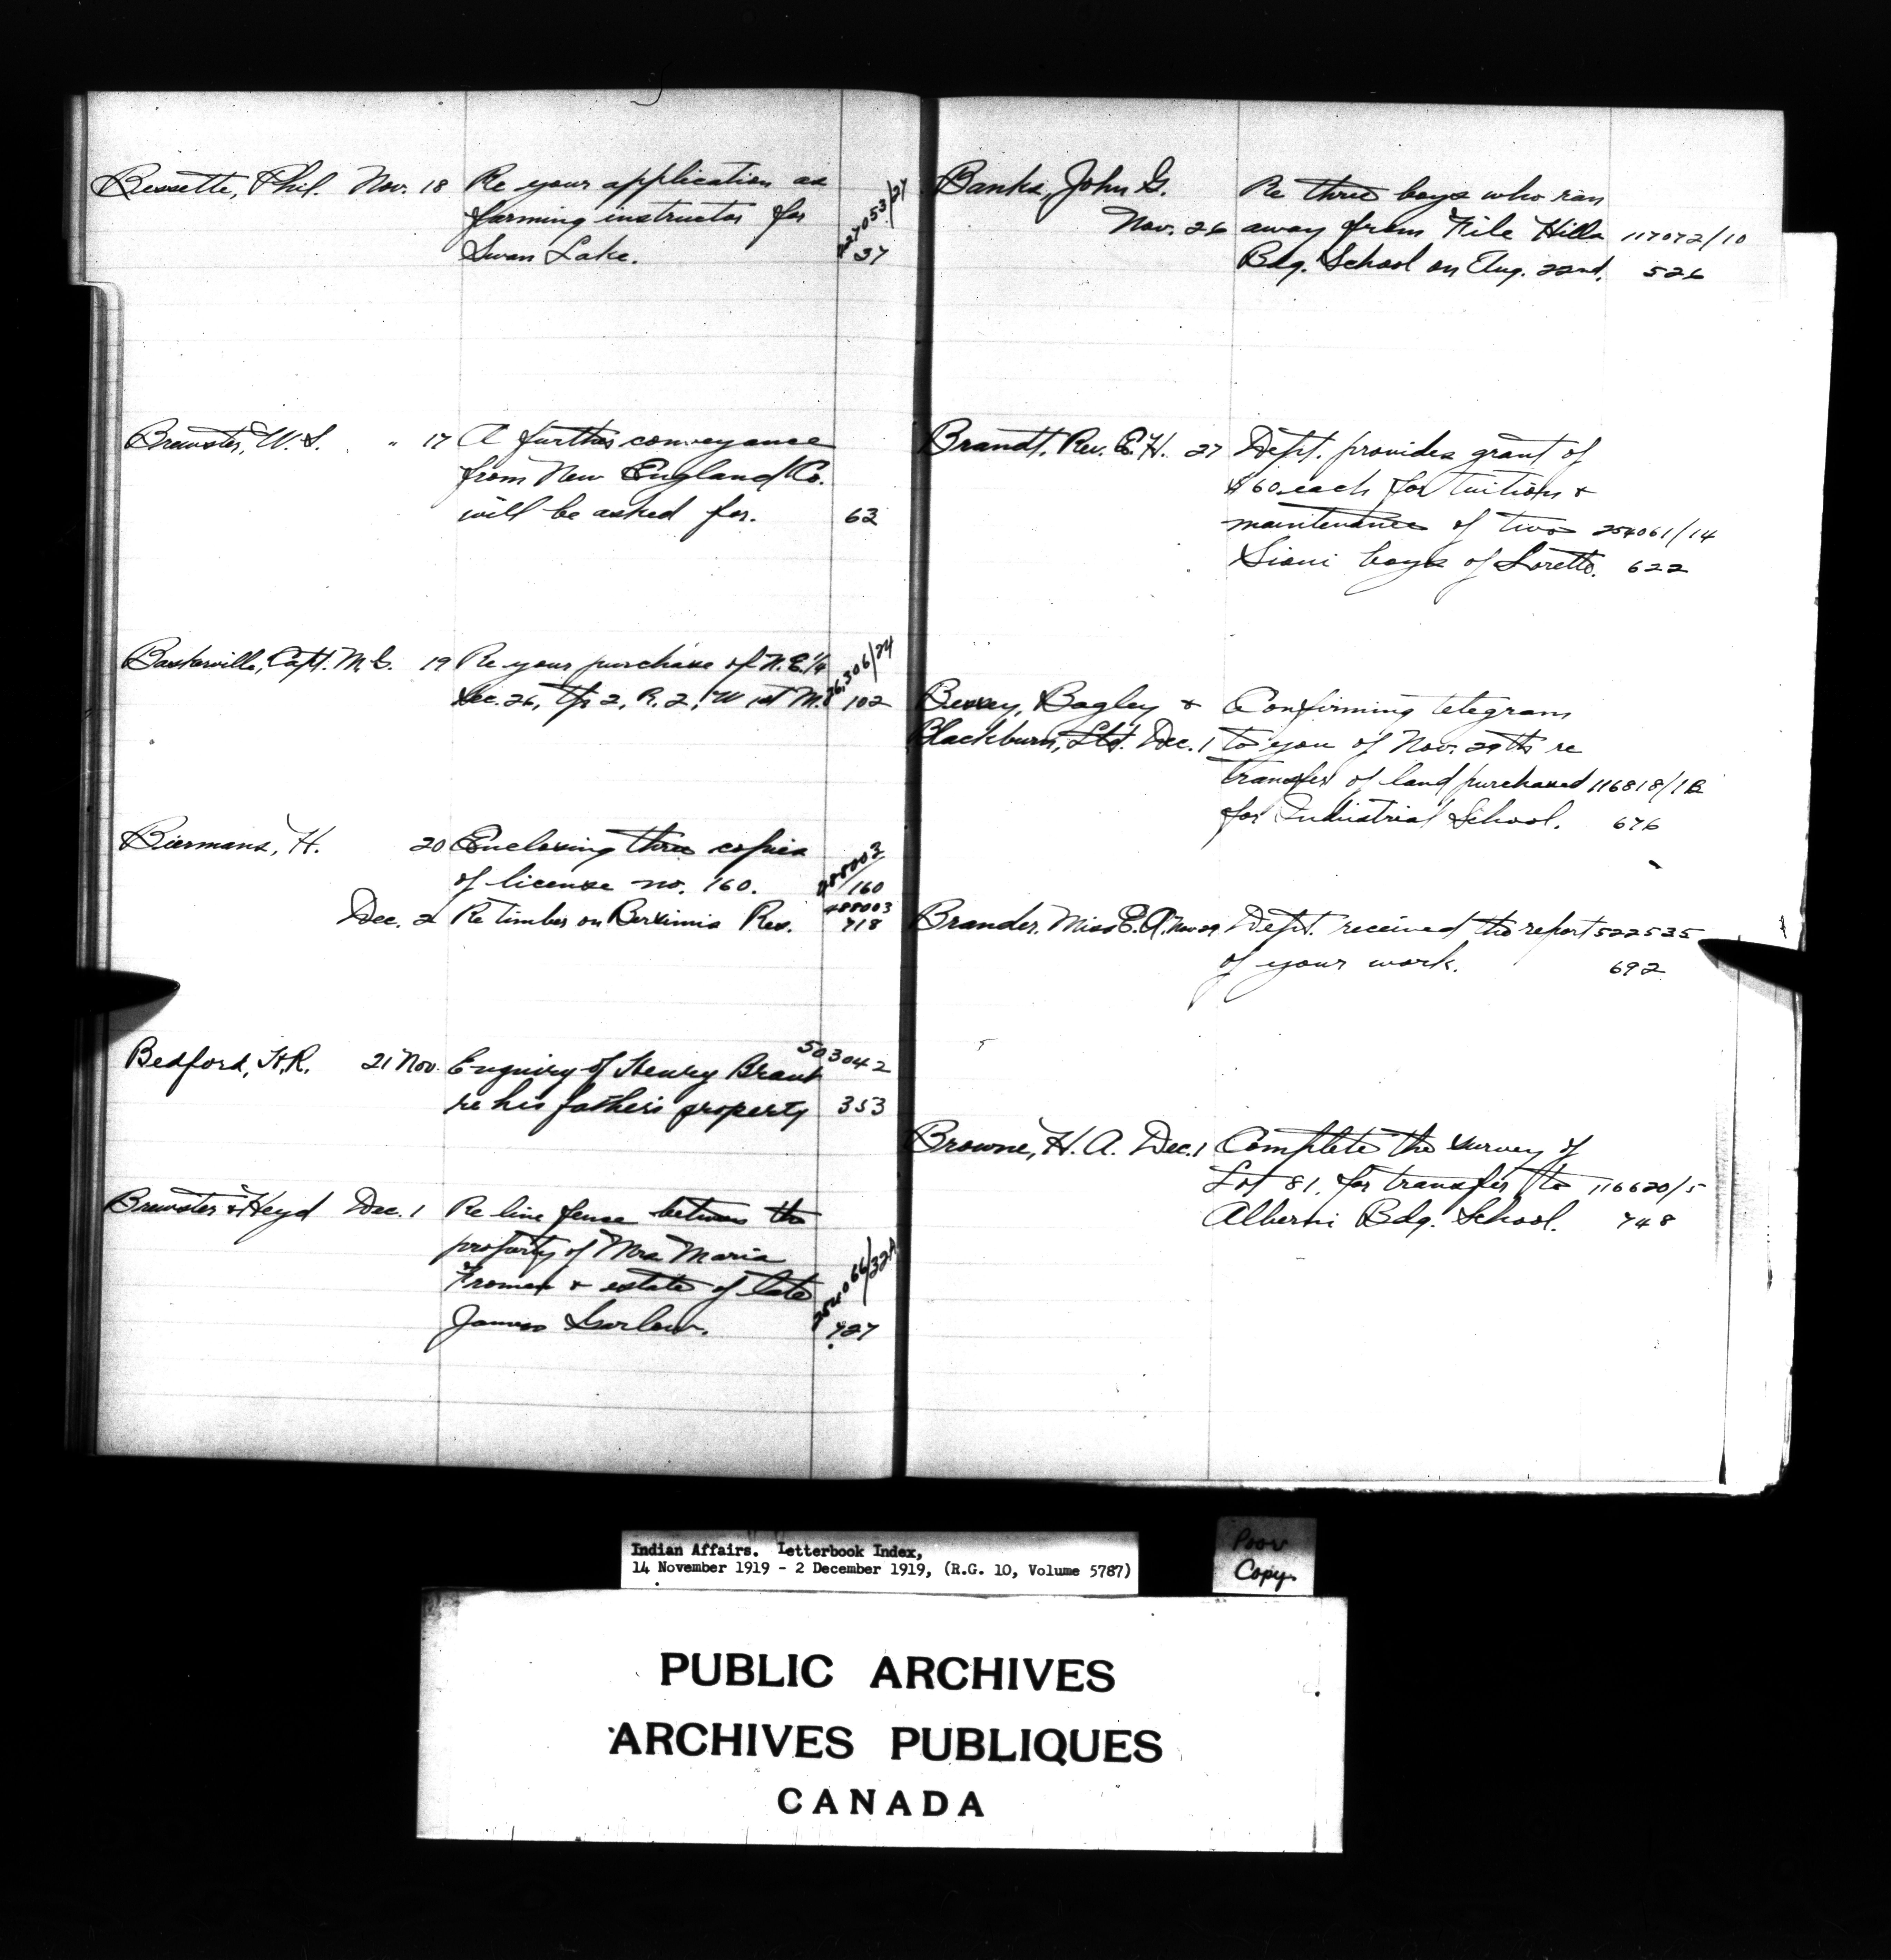 Bessette, Phil. Nov. 18 Re your application as
farming instructor for 227053/27
Swan Lake. 37
Brewster, W. S. " 17 A further conveyance
from New England Co.
will be asked for. 63
Baskerville, Capt. M. G. 19 Re your purchase of N.E. 1/4
Sec. 26, Tp 2, R. 2, W 1st M. 102
Biermans, H. 20 Enclosing three copies
of license no. 160. 488003/160
Dec. 2 Re timber on Bersimis Res. 488003
718
Bedford, H.R. 21 Nov. Enquiry of Henry Brant 503042
re his father's property 353
Brewster & Heyd Dec. 1 Re line fense between the
property of Mrs Maria
Froman & estate of late 254066/32A
James 727
Banks, John G. Re three boys who ran
Nov. 26 away from File Hills 117072/10
Bdg. School on Aug. 22nd. 526
Brandt, Rev. E. H. 27 Dept. provides grant of
$60 each for tuition &
maintenance of two 254061/14
Sioui boys of Lorette. 622
Bessey, Bagley & Confirming telegram
Blackburn, Ltd. Dec. 1 to you of Nov. 29th re
transfer of land purchased 116818/1B
for Industrial School. 676
Brander, Miss E. A. Nov 29 Dept. received the report 522535
of your work. 692
Browne, H. A. Dec. 1 Complete the survey of
Lot 81, for transfer to 116620/5
Alberni Bdg. School. 748
Indian Affairs. Letterbook Index,
14 November 1919 - 2 December 1919, (R.G. 10, Volume 5787)
Poor
Copy
PUBLIC ARCHIVES
ARCHIVES PUBLIQUES
CANADA